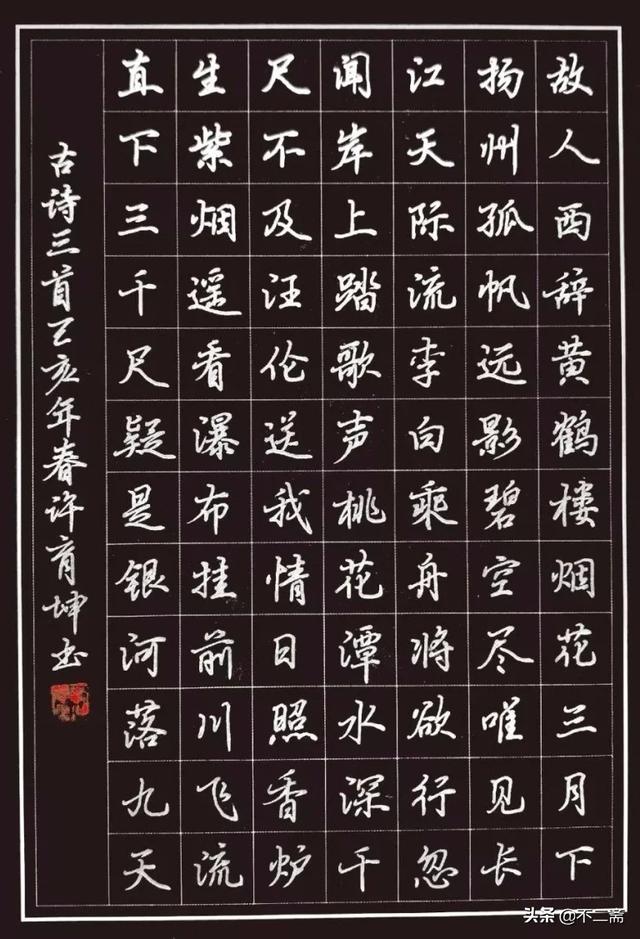 故人西辞黄鹤楼烟花三月下
扬州孤帆远影碧空尽唯见长
江天际流李白乘舟将欲行忽
闻岸上踏歌声桃花潭水深千
尺不及汪伦送我情日照香炉
生紫烟遥看瀑布挂前川飞流
直下三千尺疑是银河落九天
古诗三首乙亥年春许育坤书
头条 @不二斋